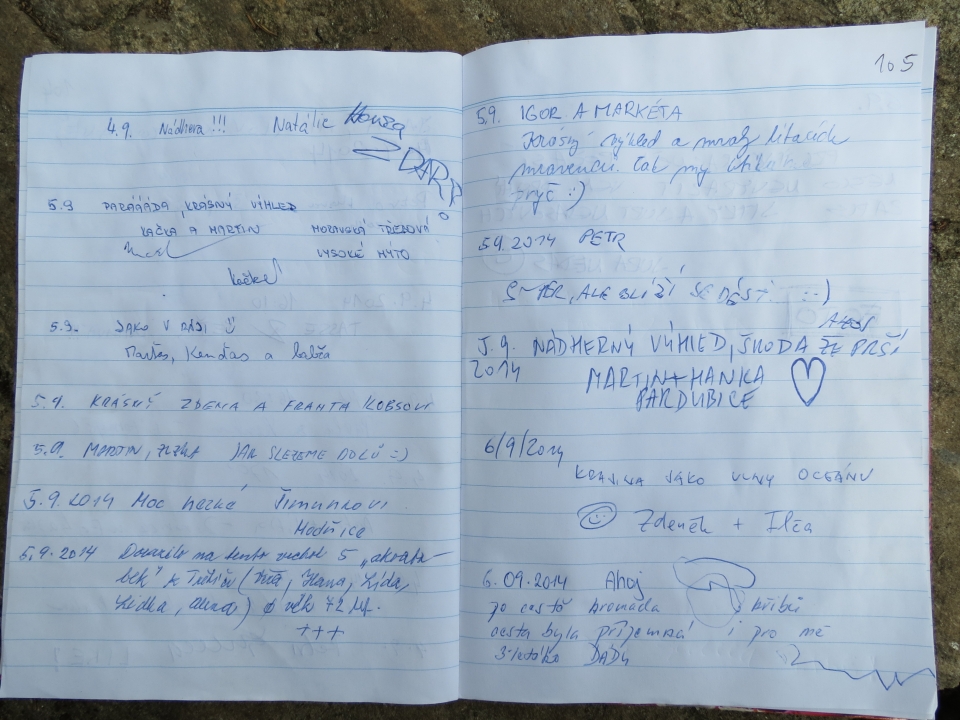 4.9. Nádhera !!! Natálie Honza
DAR!?
5.9 PARÁÁÁDA, KRÁSNÝ VÝHLED
KAČKA A MARTIN MORAVSKÁ TŘEBOVÁ
VYSOKÉ MÝTO
Kačka
5.9. JAKO V RÁJI
a babča
5.9. KRÁSNÝ ZDENA A FRANTA KOBSOVI
5.9. MARTIN, ZUZKA JAK SLEZEME DOLŮ =)
5.9.2014 MOC HEZKÉ ŠIMUNKOVI
Hodřice
5.9.2014 Dorazilo na tento vrchol 5 „
(Hana, Lída,
Lidka, ) ø věk 72 let.
+++
105
5.9. IGOR A MARKÉTA
Krásný výhled a mraky lítacích
mravenců. Tak my utíkáme
pryč :)
5.9.2014 PETR
SUPER, ALE BLÍŽÍ SE DÉŠŤ. :-)
5.9. NÁDHERNÝ VÝHLED, ŠKODA ŽE PRŠÍ
2014 MARTIN+HANKA
PARDUBICE
6/9/2014
KRAJINA JAKO VLNY OCEÁNU
Zdeněk + Ilča
6.09.2014 Ahoj
po cestě hromada hřibů
cesta byla příjemná i pro mě
3letého DÁDU